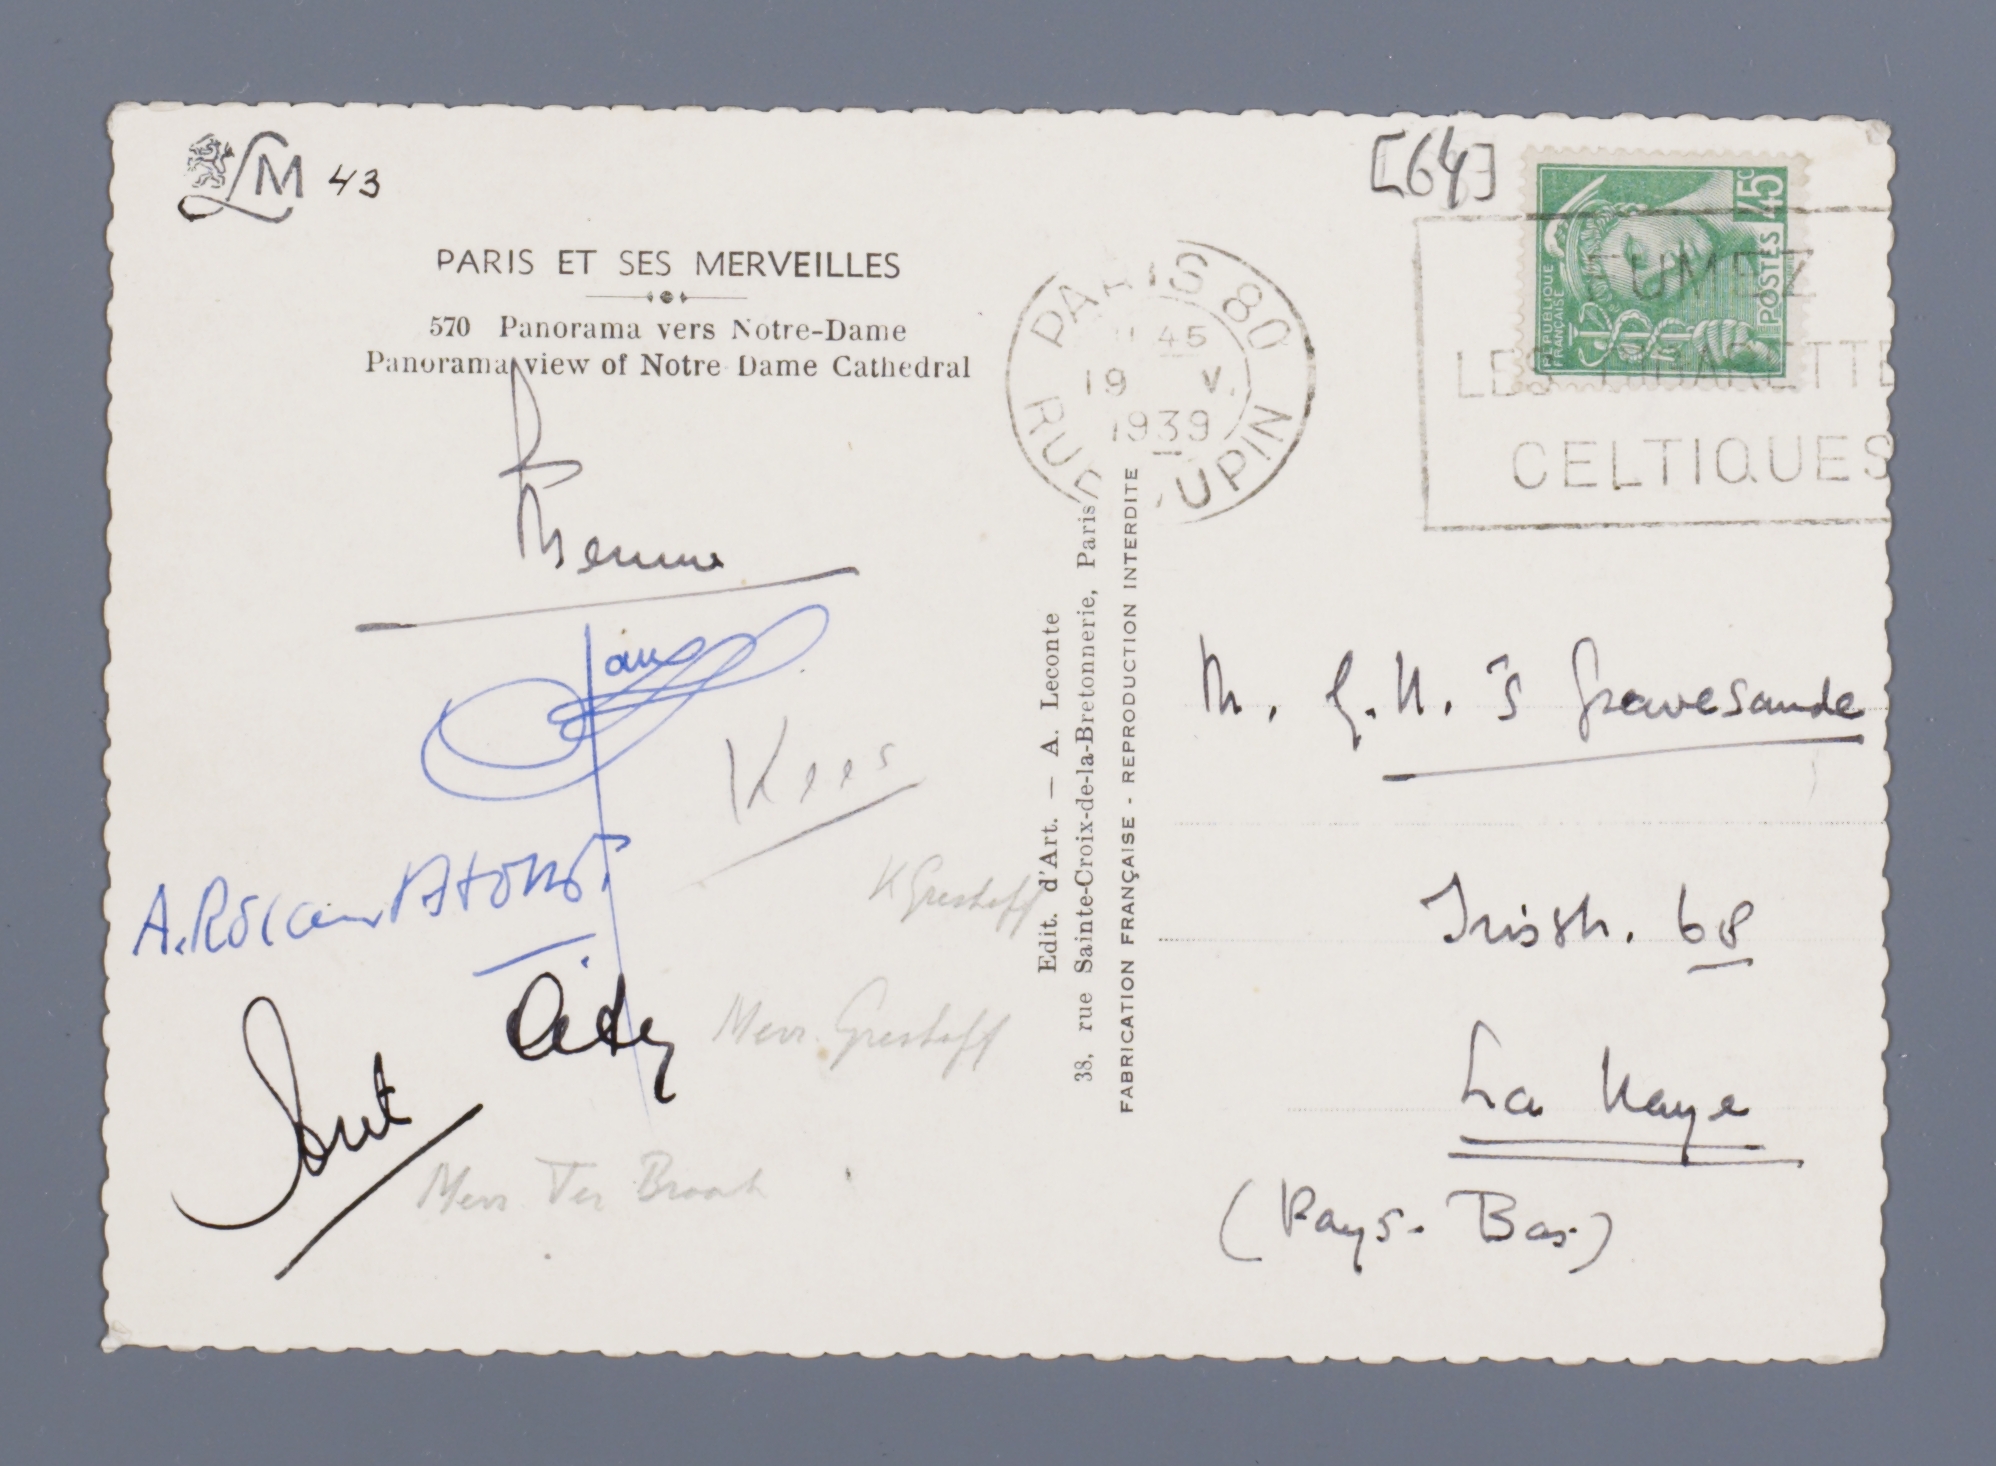 LM 43
[64]
PARIS ET SES MERVEILLES
570 Panorama vers Notre-Dame
Panorama view of Notre Dame Cathedral
PARIS 80
45
19 V.
1939
RUE DUPIN
RÉPUBLIQUE
FRANÇAISE
POSTES 45c
FUMEZ
LES CIGARETTE
CELTIQUES
Menno
Jan
Kees
K Greshoff
A. Roland Holst
Aty
Mevr. Greshoff
Ant
Mevr Ter Braak
Edit. d'Art. — A. Leconte
38, rue Sainte-Croix-de-la-Bretonnerie, Paris
FABRICATION FRANÇAISE - REPRODUCTION INTERDITE
M. G.H. 's Gravesande
Irisstr. 68
La Haye
(Pays-Bas)